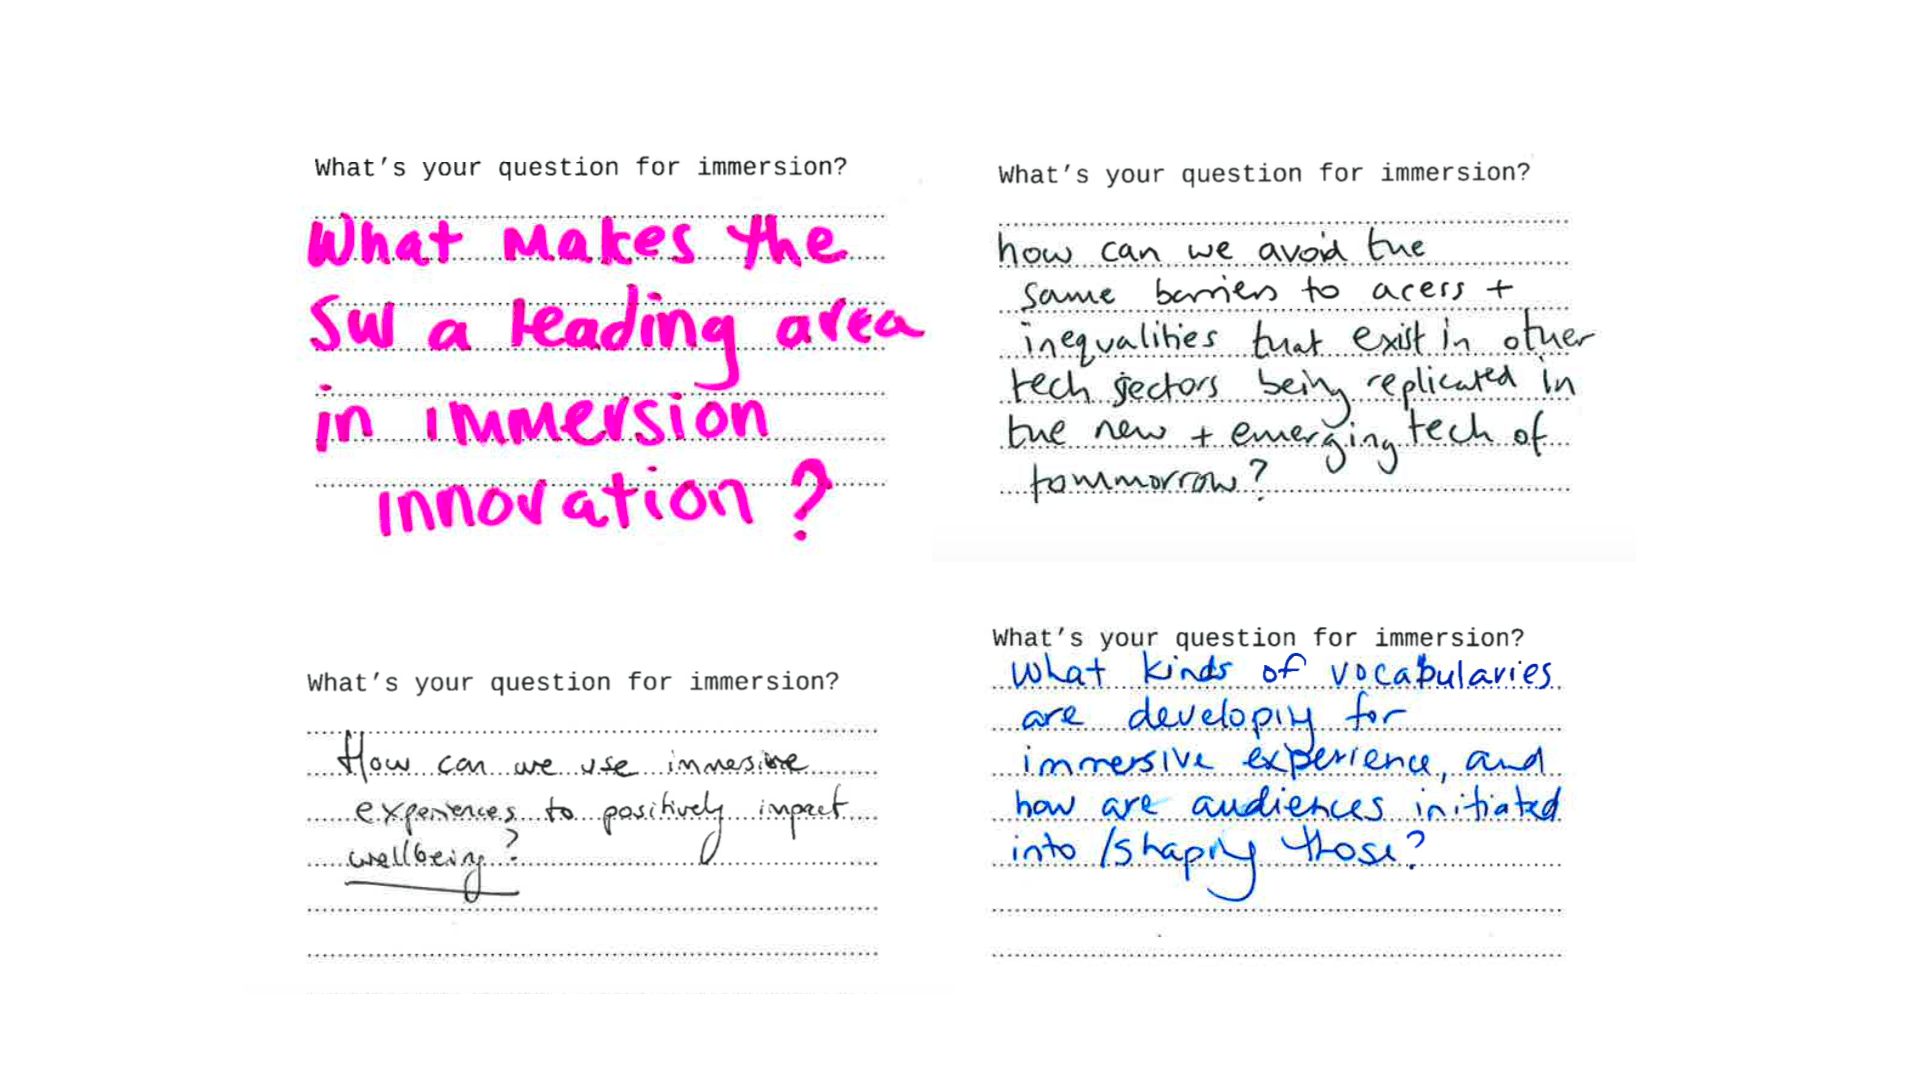 What's your question for immersion?
What makes the
SW a leading area
in immersion
innovation?
What's your question for immersion?
how can we avoid the
same barriers to acess +
inequalities that exist in other
tech sectors being replicated in
the new + emerging tech of
tommorrow?
What's your question for immersion?
How can we use immersive
experiences to positively impact
wellbeing?
What's your question for immersion?
What kinds of vocabularies
are developing for
immersive experience, and
how are audiences initiated
into /shaping those?